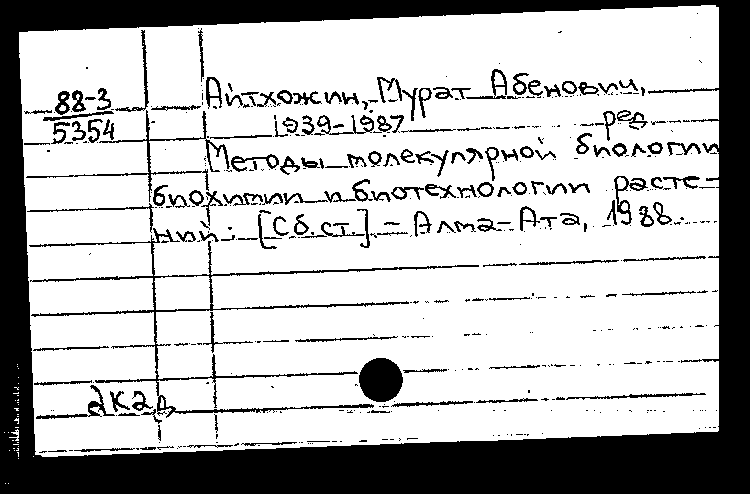 88-3
5354
Айтхожин, Мурат Абенович,
1939-1987 ред.
Методы молекулярной биологии
биохимии и биотехнологии расте-
ний: [Сб. ст.] - Алма-Ата, 1988.
2к2д